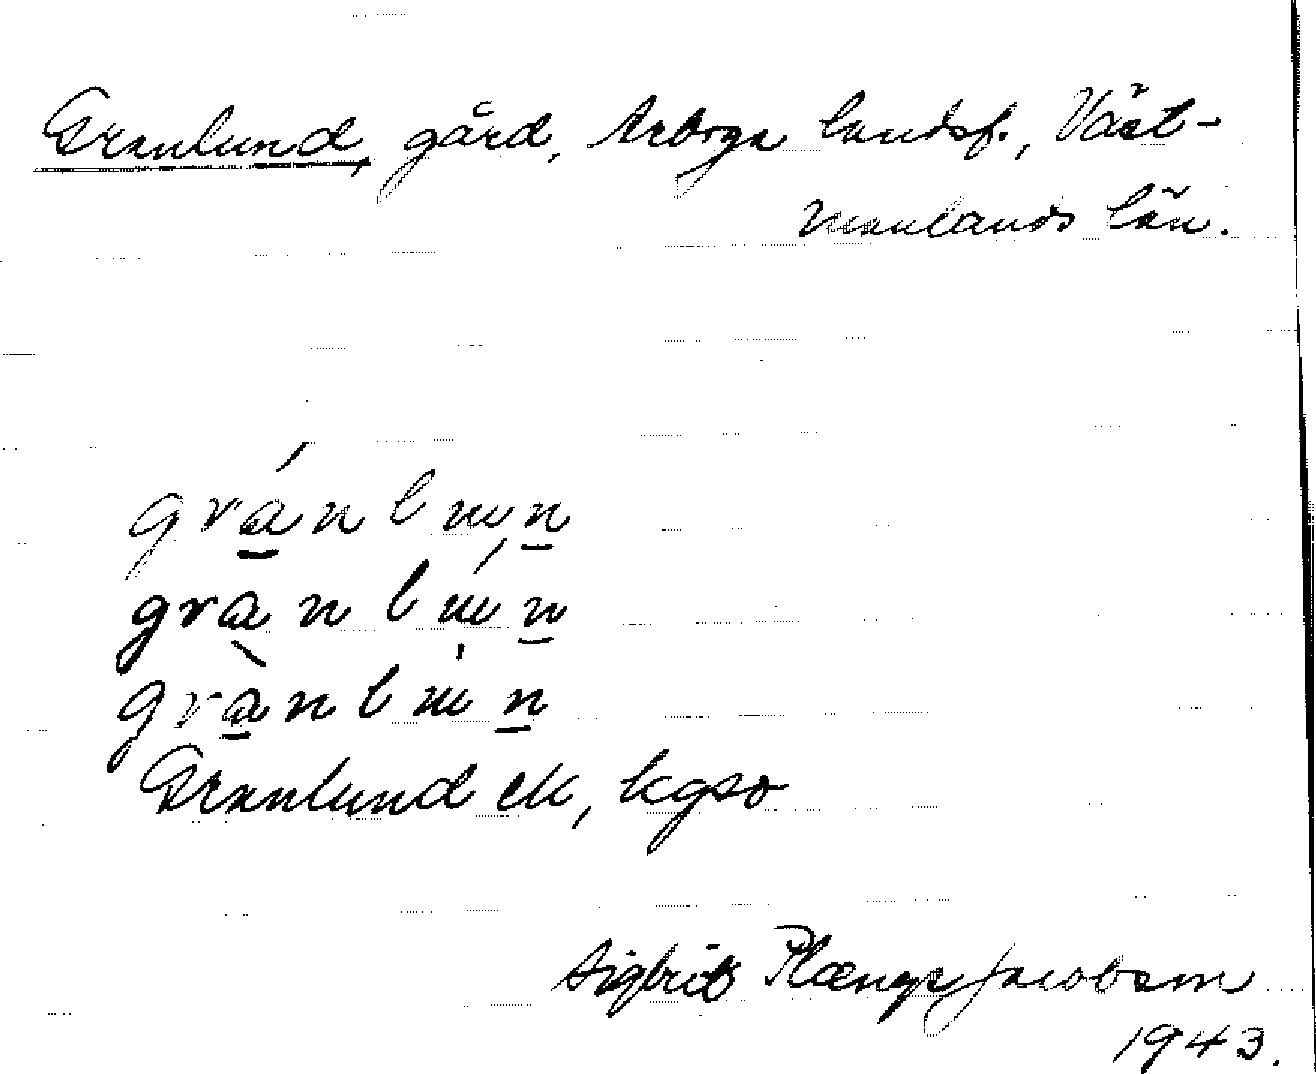 Granlund, gård, Arboga landsf., Väst-
manlands län.
gránlun
granlún
grànlun
Granlund ek, kgso
Sigbrit Plænge Jacobson
1943.